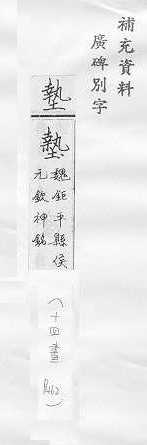 補充資料
廣碑別字
墊
魏鉅平縣侯
元欽神銘
(十四畫